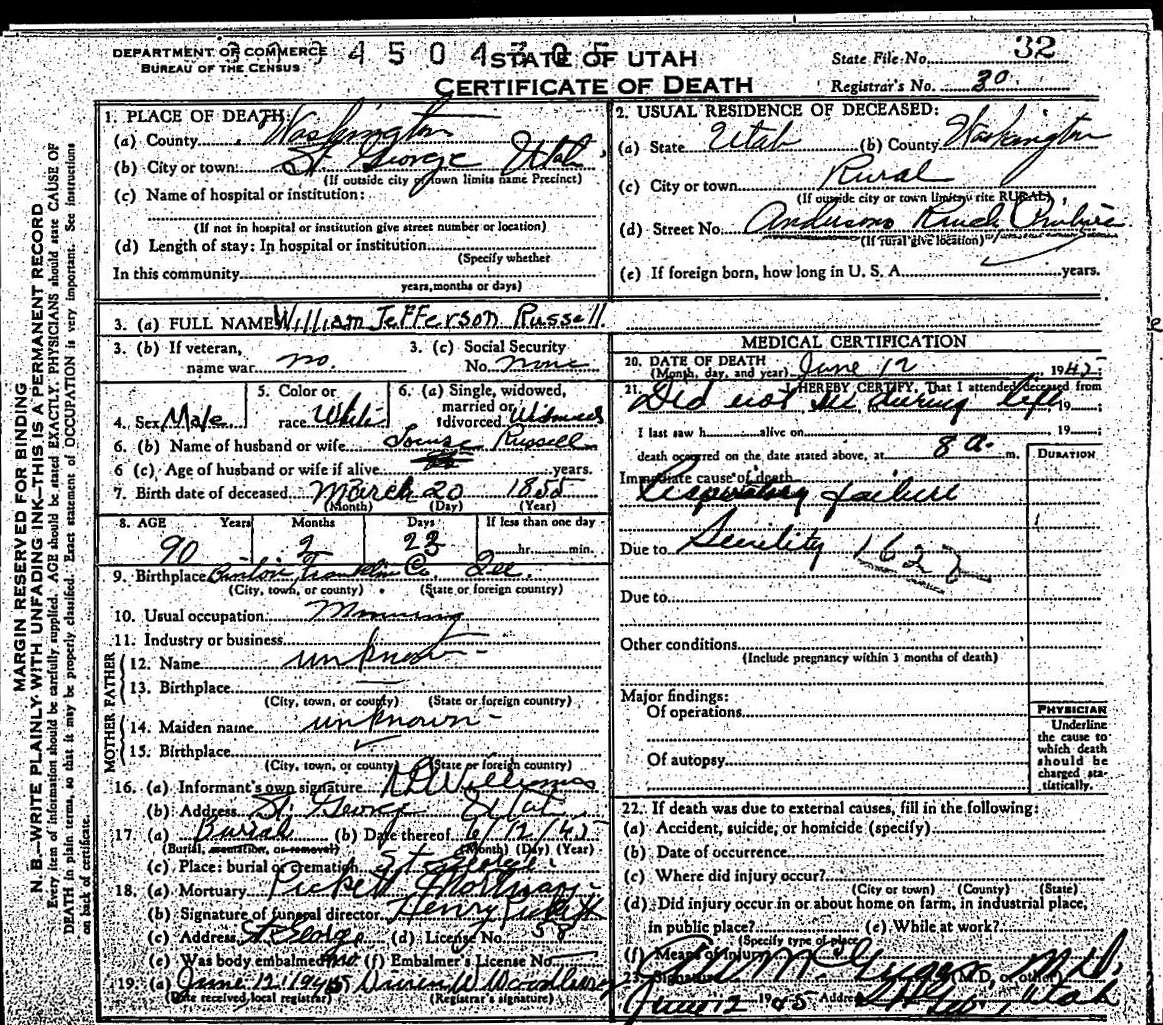 DEPARTMENT OF COMMERCE
BUREAU OF THE CENSUS
4 5 0 4
STATE OF UTAH
CERTIFICATE OF DEATH
State File No. 32
Registrar's No. 30
MARGIN RESERVED FOR BINDING
N. B.—WRITE PLAINLY WITH UNFADING INK—THIS IS A PERMANENT RECORD
Every item of information should be carefully supplied. AGE should be stated EXACTLY. PHYSICIANS should state CAUSE OF
DEATH in plain terms, so that it may be properly classified. Exact statement of OCCUPATION is very important. See instructions
on back of certificate.
1. PLACE OF DEATH:
(a) County Washington
(b) City or town: St George Utah
(If outside city or town limits name Precinct)
(c) Name of hospital or institution:
(If not in hospital or institution give street number or location)
(d) Length of stay: In hospital or institution
(Specify whether
In this community
years, months or days)
2. USUAL RESIDENCE OF DECEASED:
(a) State Utah (b) County Washington
(c) City or town Rural
(If outside city or town limits write RURAL)
(d) Street No. Andersons
(If rural give location)
(e) If foreign born, how long in U. S. A. years.
3. (a) FULL NAME William Jefferson Russell
3. (b) If veteran, name war no. 3. (c) Social Security No. none
4. Sex Male 5. Color or race White 6. (a) Single, widowed, married or divorced Widowed
6. (b) Name of husband or wife Louise Russell
6 (c) Age of husband or wife if alive years.
7. Birth date of deceased March 20 1855
(Month) (Day) (Year)
8. AGE Years Months Days If less than one day
90 2 23 hr. min.
9. Birthplace Franklin Co.
(City, town, or county) (State or foreign country)
10. Usual occupation
11. Industry or business
FATHER
12. Name unknown
13. Birthplace
(City, town, or county) (State or foreign country)
MOTHER
14. Maiden name unknown
15. Birthplace
(City, town, or county) (State or foreign country)
16. (a) Informant's own signature Williams
(b) Address St. George Utah
17. (a) Burial (b) Date thereof 6/12/45
(Burial, cremation, or removal) (Month) (Day) (Year)
(c) Place: burial or cremation St George
18. (a) Mortuary Pickett Mortuary
(b) Signature of funeral director Henry Pickett
(c) Address St George (d) License No. 58
(e) Was body embalmed no (f) Embalmer's License No.
19. (a) June 12, 1945
(Date received local registrar) (Registrar's signature)
MEDICAL CERTIFICATION
20. DATE OF DEATH
(Month, day, and year) June 12, 1945
21. I HEREBY CERTIFY, That I attended deceased from
Did not see during life 19
I last saw h alive on 19
death occurred on the date stated above, at 8 a. m.
DURATION
Immediate cause of death
Respiratory failure
Due to Senility 162
Due to
Other conditions
(Include pregnancy within 3 months of death)
Major findings:
Of operations
Of autopsy
PHYSICIAN
Underline
the cause to
which death
should be
charged sta-
tistically.
22. If death was due to external causes, fill in the following:
(a) Accident, suicide, or homicide (specify)
(b) Date of occurrence
(c) Where did injury occur?
(City or town) (County) (State)
(d) Did injury occur in or about home on farm, in industrial place,
in public place? (e) While at work?
(Specify type of place)
(f) Means of injury
23. Signature M.D. (M.D. or other)
June 12 1945 Address St Geo, Utah